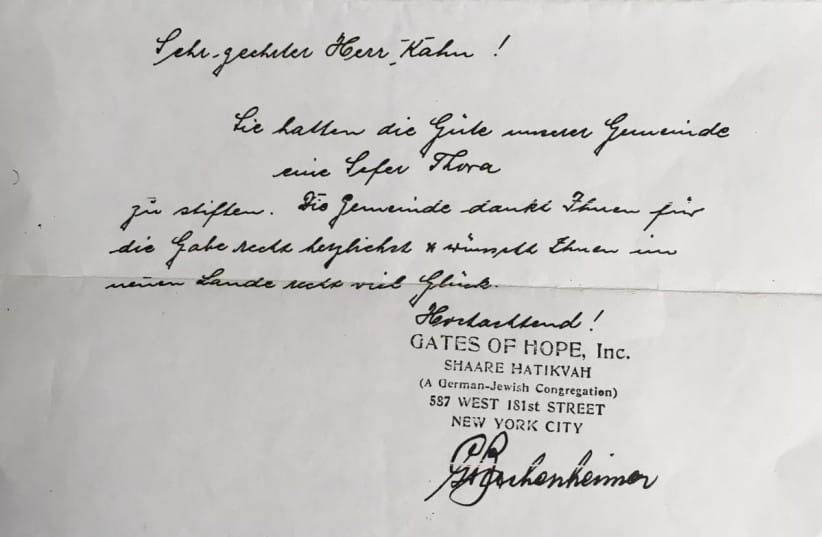 Sehr geehrter Herr Kahn!
Sie hatten die Güte unserer Gemeinde
eine Sefer Thora
zu stiften. Die Gemeinde dankt Ihnen für
die Gabe recht herzlichst & wünscht Ihnen im
neuen Lande recht viel Glück.
Hochachtend!
GATES OF HOPE, Inc.
SHAARE HATIKVAH
(A German-Jewish Congregation)
587 WEST 181st STREET
NEW YORK CITY